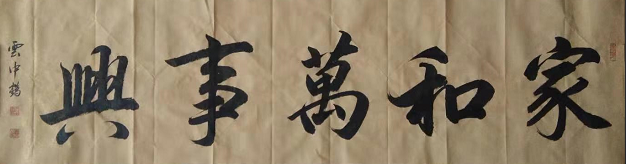 家和萬事興
雲中鶴